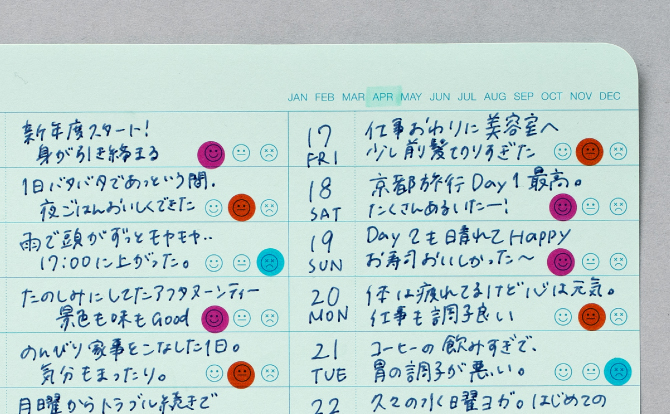 JAN FEB MAR APR MAY JUN JUL AUG SEP OCT NOV DEC
新年度スタート!
身が引き締まる
1日バタバタであっという間.
夜ごはんおいしくできた
雨で頭がずっとモヤモヤ..
17:00に上がった。
たのしみにしてたアフタヌーンティー
景色も味もGood
のんびり家事をこなした1日。
気分もまったり。
月曜からトラブル続きで
17 FRI
仕事おわりに美容室へ
少し前髪てりすぎた
18 SAT
京都旅行Day1最高。
たくさんあるいたー!
19 SUN
Day2も晴れてHappy
お寿司おいしかった〜
20 MON
体は疲れてるけど心は元気。
仕事も調子良い
21 TUE
コーヒーの飲みすぎで、
胃の調子が悪い。
22
久々の水曜ヨガ。はじめての